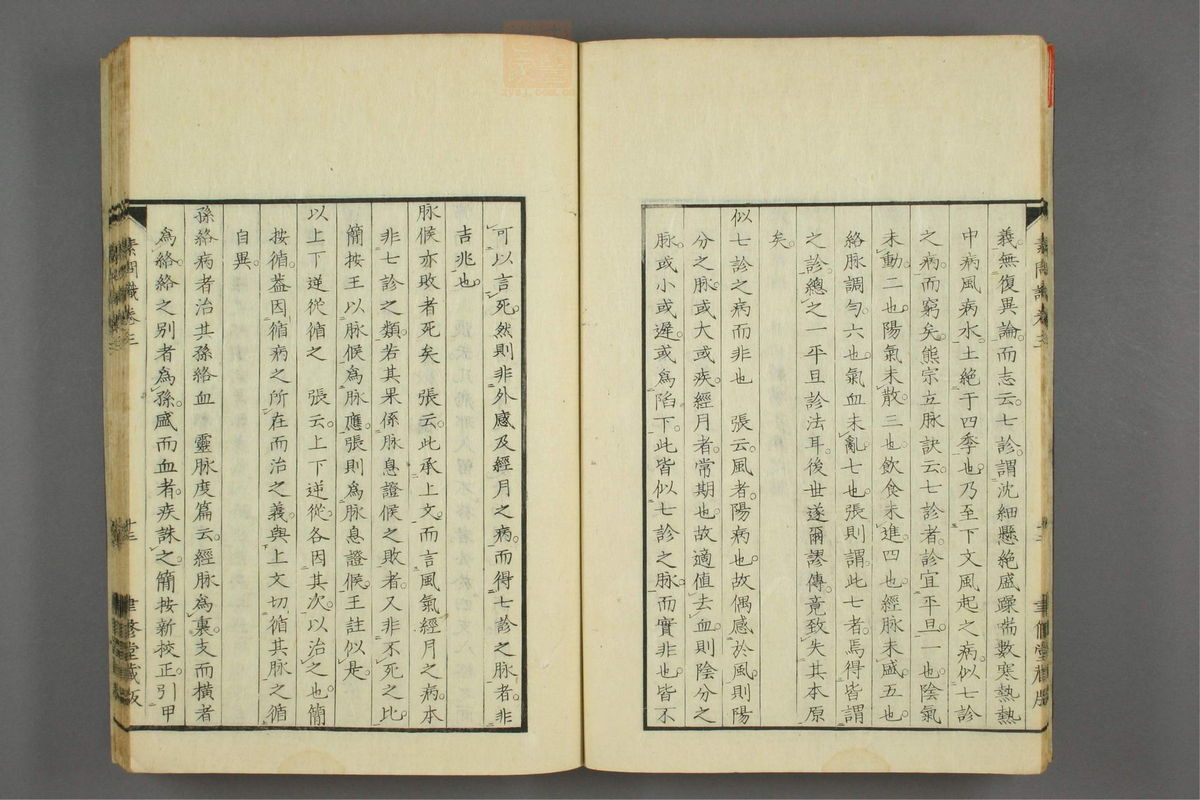 義無復異論而志云七診謂沈細懸絕盛躁喘數寒熱熱
中病風病水土絕于四季也乃至下文風起之病似七診
之病而窮矣熊宗立脉訣云七診者診宜平旦一也陰氣
未動二也陽氣未散三也飲食未進四也經脉未盛五也
絡脉調勻六也氣血未亂七也張則謂此七者焉得皆謂
之診總之一平旦診法耳後世遂爾謬傳竟致失其本原
矣
似七診之病而非也　張云風者陽病也故偶感於風則陽
分之脉或大或疾經月者常期也故適值去血則陰分之
脉或小或遲或為陷下此皆似七診之脉而實非也皆不
可以言死然則非外感及經月之病而得七診之脉者非
吉兆也
脉候亦敗者死矣　張云此承上文而言風氣經月之病本
非七診之類若其果係脉息證候之敗者又非不死之比
簡按王以脉候為脉應張則為脉息證候王註似是
以上下逆從循之　張云上下逆從各因其次以治之也簡
按循蓋因循病之所在而治之義與上文切循其脉之循
自異
孫絡病者治其孫絡血　靈脉度篇云經脉為裏支而橫者
為絡絡之別者為孫盛而血者疾誅之簡按新校正引甲
素問識卷三
聿修堂藏版